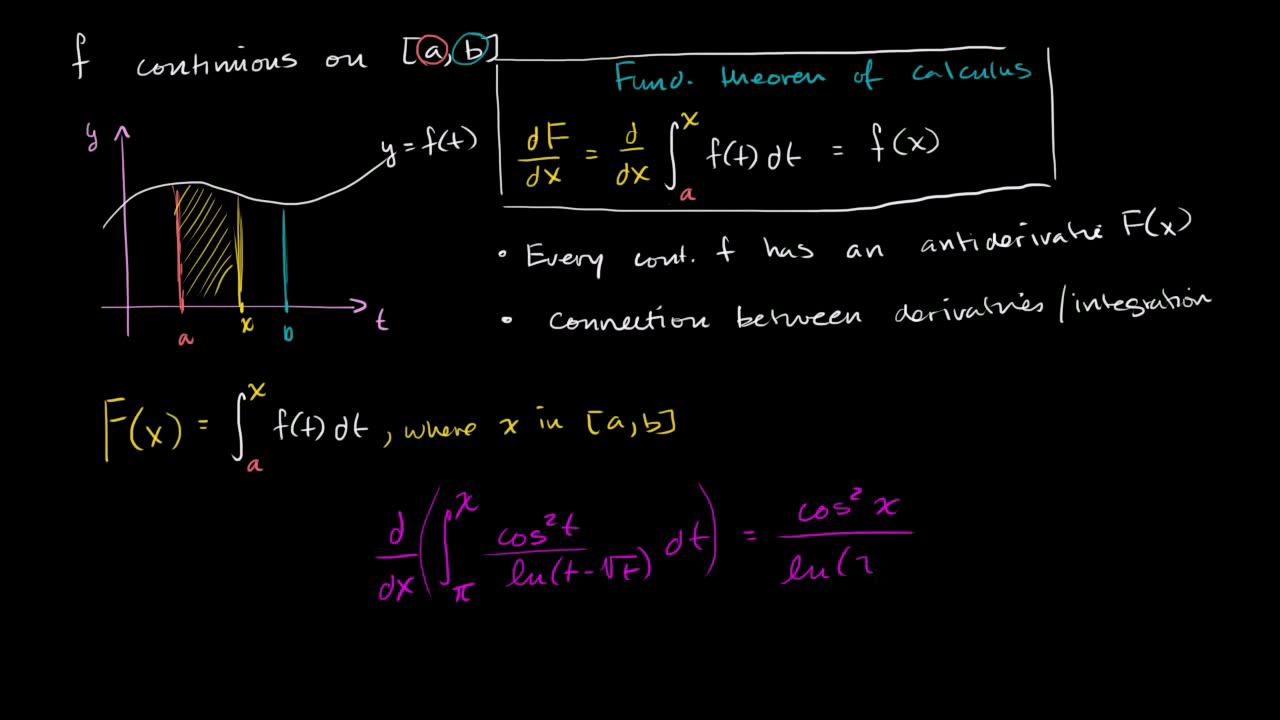 f continuous on [a, b]
Fund. theorem of calculus
dF/dx = d/dx ∫_a^x f(t) dt = f(x)
y
y = f(t)
a x b t
• Every cont. f has an antiderivative F(x)
• Connection between derivatives/integration
F(x) = ∫_a^x f(t) dt, where x in [a, b]
d/dx (∫_π^x cos²t / ln(t-√t) dt) = cos² x / ln(